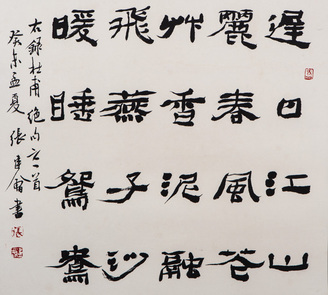 遲日江山
麗春風花
艸香泥融
飛燕子沙
暖睡鴛鴦
右錄杜甫絕句之一首
癸未孟夏 張 書